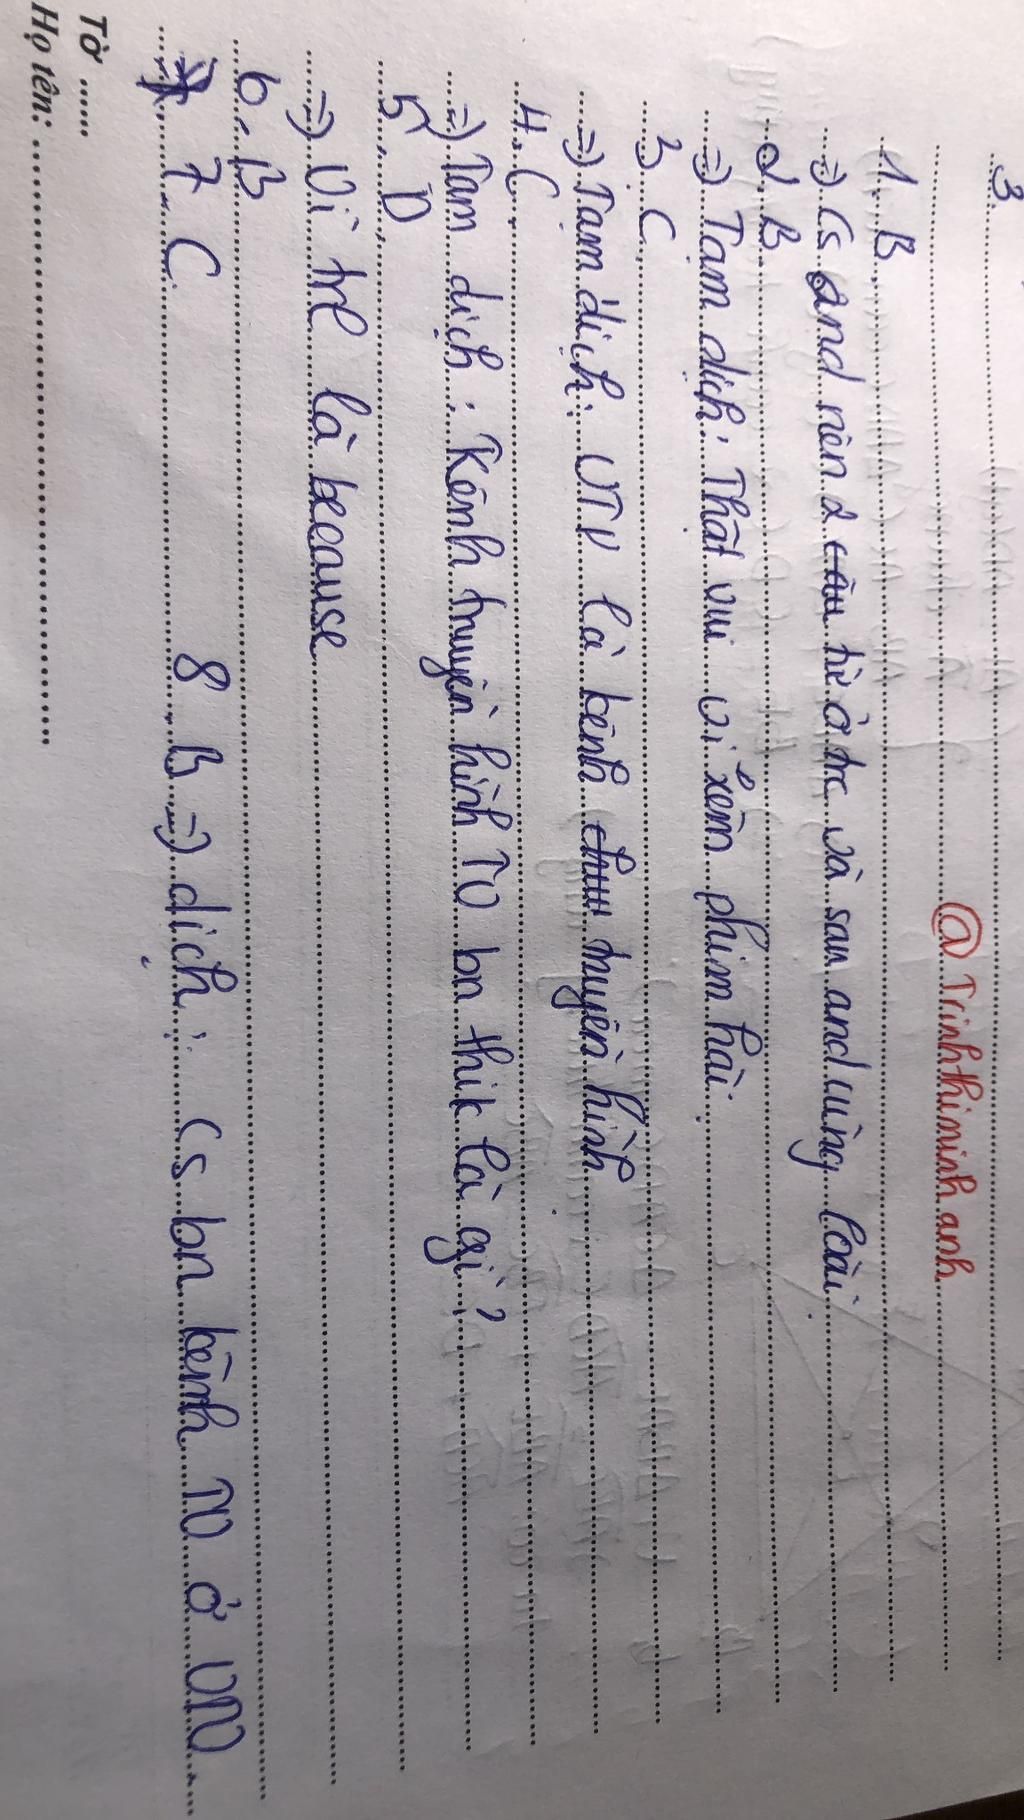 3
@ Trinhthiminh anh
1. B
=) Cs and nên 2 từ ở trc và sau and cùng loài.
2. B.
=) Tạm dịch: Thật vui vì xem phim hài.
3. C.
=) Tạm dịch: VTV là kênh truyền hình
4. C.
=) Tam dịch: Kênh truyền hình TV bn thik là gì?
5. D.
=) Vì trl là because
6. B
7. C 8. B =) dịch: Cs bn kênh TV ở VN.
Tờ .....
Họ tên: